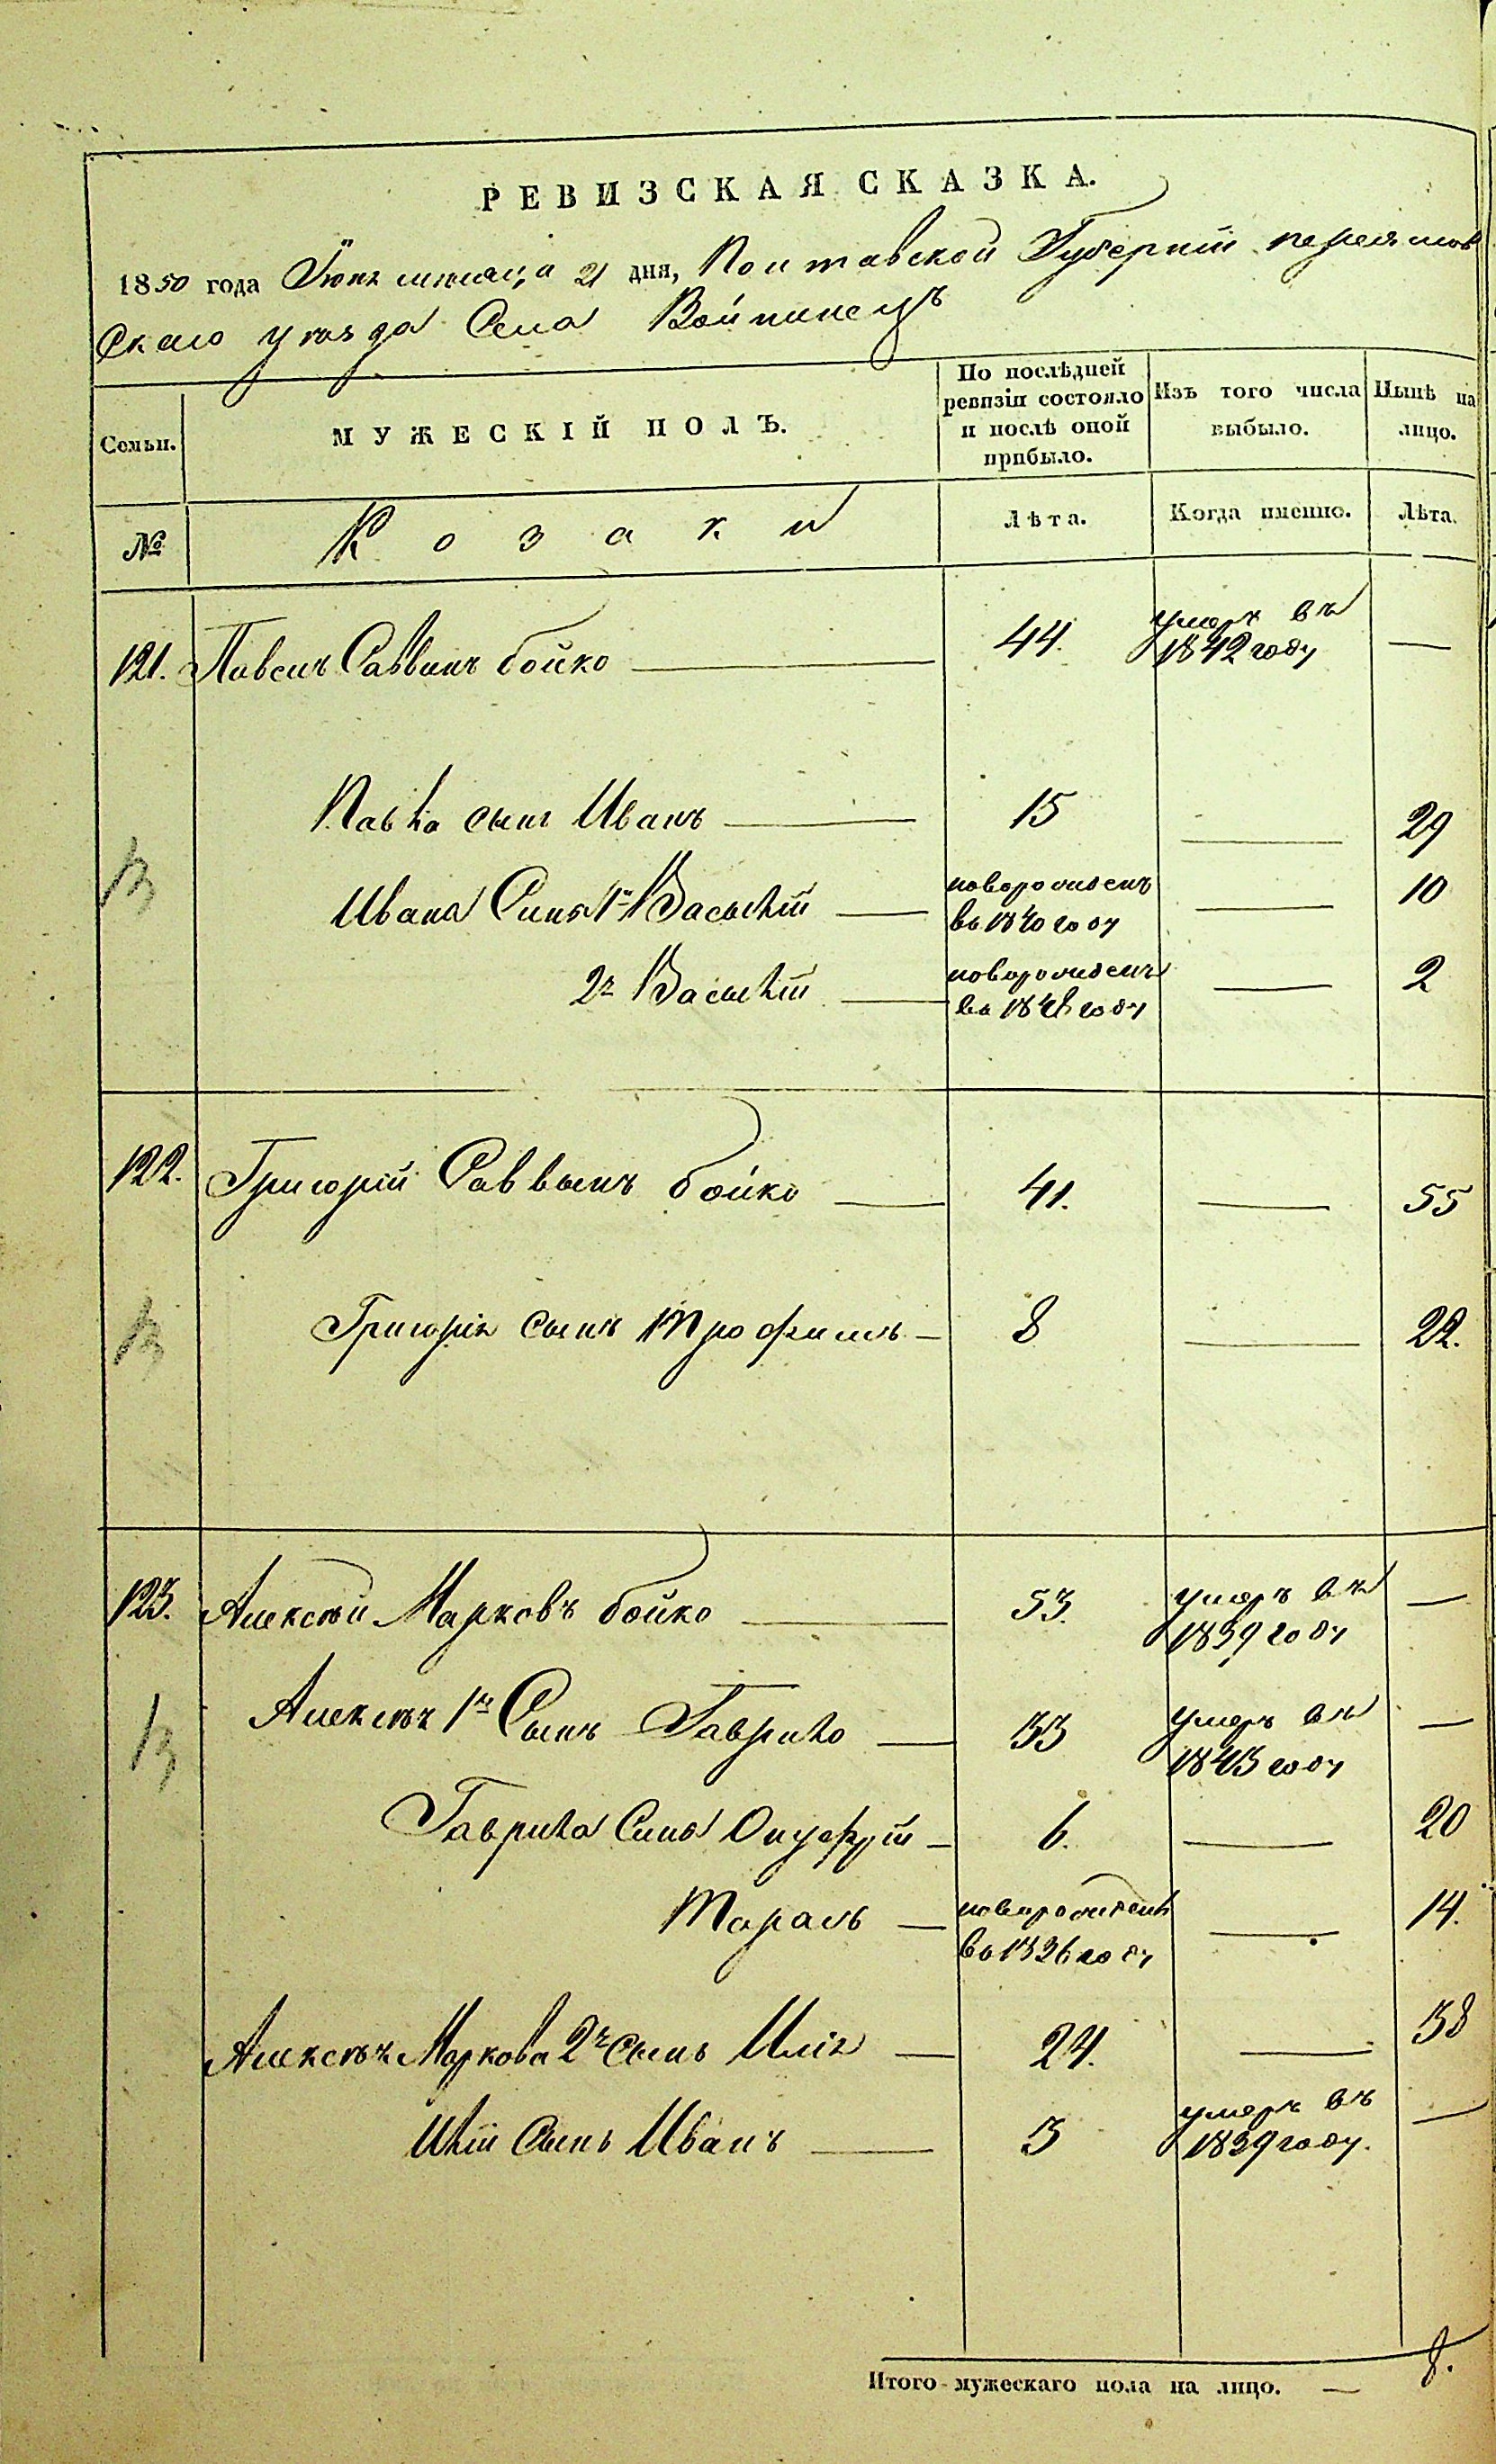 РЕВИЗСКАЯ СКАЗКА.
1850 года Іюня мѣсяца 21 дня, Полтавской Губерніи переяслов
скаго уѣзда Села Войтинецъ
Семьи. МУЖЕСКІЙ ПОЛЪ. По послѣдней ревизіи состояло и послѣ оной прибыло. Изъ того числа выбыло. Нынѣ на лицо.
№ Козаки Лѣта. Когда именно. Лѣта.
121. Павелъ Саввинъ бойко 44. умеръ въ 1842 году —
Павла сынъ Иванъ 15 — 29
Ивана Сыны 1й Василій новорожденъ въ 1840 году — 10
2й Василій новорожденъ въ 1848 году — 2
122. Григорій Саввинъ бойко 41. — 55
Григорія сынъ Трофимъ 8 — 22.
123. Алексѣй Марковъ бойко 53. умеръ въ 1839 году —
Алексѣя 1й Сынъ Гаврило 33 умеръ въ 1843 году —
Гаврила Сыны Онуфрій 6. — 20
Тарасъ новорожденъ въ 1836 году — 14.
Алексѣя Маркова 2й сынъ Илія 24. — 38
Иліи Сынъ Иванъ 3 умеръ въ 1839 году. —
Итого мужескаго пола на лицо. — 8.